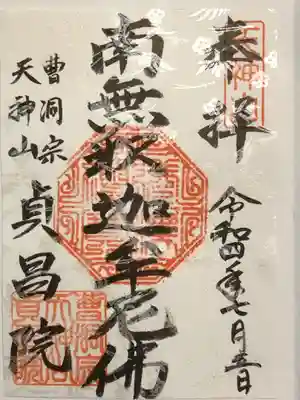 奉拝
令和四年七月五日
南無釈迦牟尼佛
曹洞宗
天神山
貞昌院